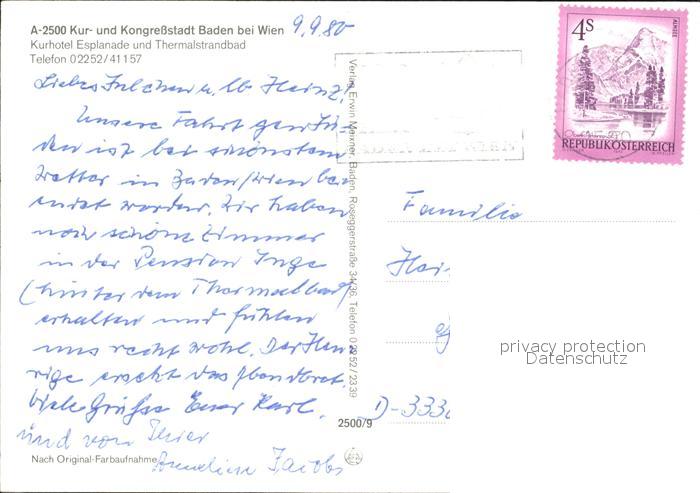 A-2500 Kur- und Kongreßstadt Baden bei Wien
9.9.80
Kurhotel Esplanade und Thermalstrandbad
Telefon 02252/41157
Liebes Julchen u. lb. Heinz!
Unsere Fahrt gen Sü-
den ist bei schönstem
Wetter in Baden/Wien be
endet worden. Wir haben
noch schöne Zimmer
in der Pension Inge
(hinter dem Thermalbad)
erhalten und fühlen
uns recht wohl. Der Heu
rige ersetzt das Abendbrot.
Viele Grüße Euer Karl.
und von Ihrer
Jacobs
Nach Original-Farbaufnahme
Verlag Erwin Meixner, Baden, Roseggerstraße 34/36, Telefon 0 22 52 / 2339
2500/9
4S
ALMSEE
REPUBLIK ÖSTERREICH
Familie
Hei
D-333
privacy protection
Datenschutz